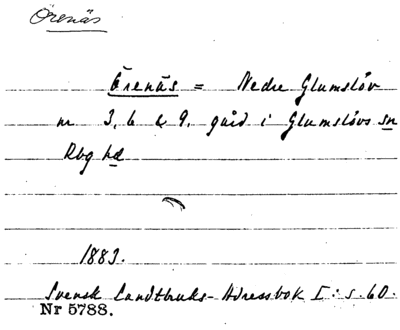 Örenäs
Örenäs = Nedre Glumslöv
nr 3, 6 & 9, gård i Glumslövs sn
Rbg hd
1883.
Svensk Landtbruks-Adressbok I: s. 60.
Nr 5788.